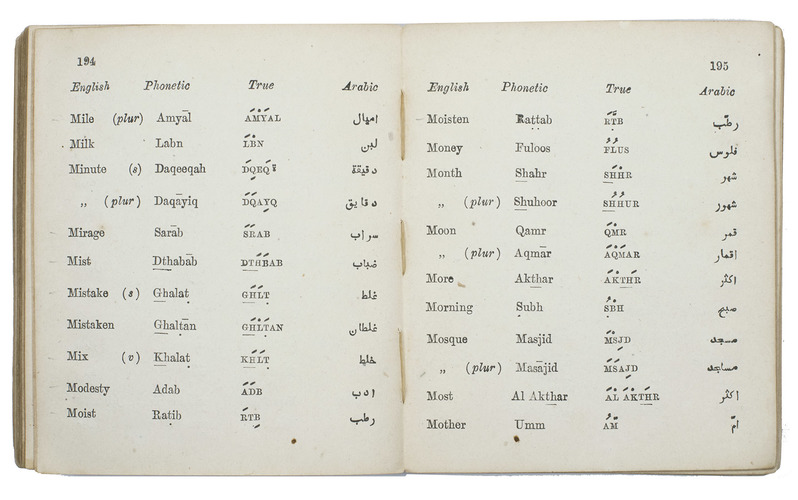 194
English Phonetic True Arabic
Mile (plur) Amyāl AMYAL اميال
Milk Labn LBN لبن
Minute (s) Daqeeqah DQEQة دقيقة
„ (plur) Daqāyiq DQAYQ دقايق
Mirage Sarāb SRAB سراب
Mist Dthabāb DTHBAB ضباب
Mistake (s) Ghalaṭ GHLT غلط
Mistaken Ghalṭān GHLTAN غلطان
Mix (v) Khalaṭ KHLT خلط
Modesty Adab ADB ادب
Moist Raṭib RTB رطب
195
English Phonetic True Arabic
Moisten Raṭṭab RTB رطّب
Money Fuloos FLUS فلوس
Month Shahr SHHR شهر
„ (plur) Shuhoor SHHUR شهور
Moon Qamr QMR قمر
„ (plur) Aqmār AQMAR اقمار
More Akthar AKTHR اكثر
Morning Ṣubh SBH صبح
Mosque Masjid MSJD مسجد
„ (plur) Masājid MSAJD مساجد
Most Al Akthar AL AKTHR اكثر
Mother Umm AM امّ